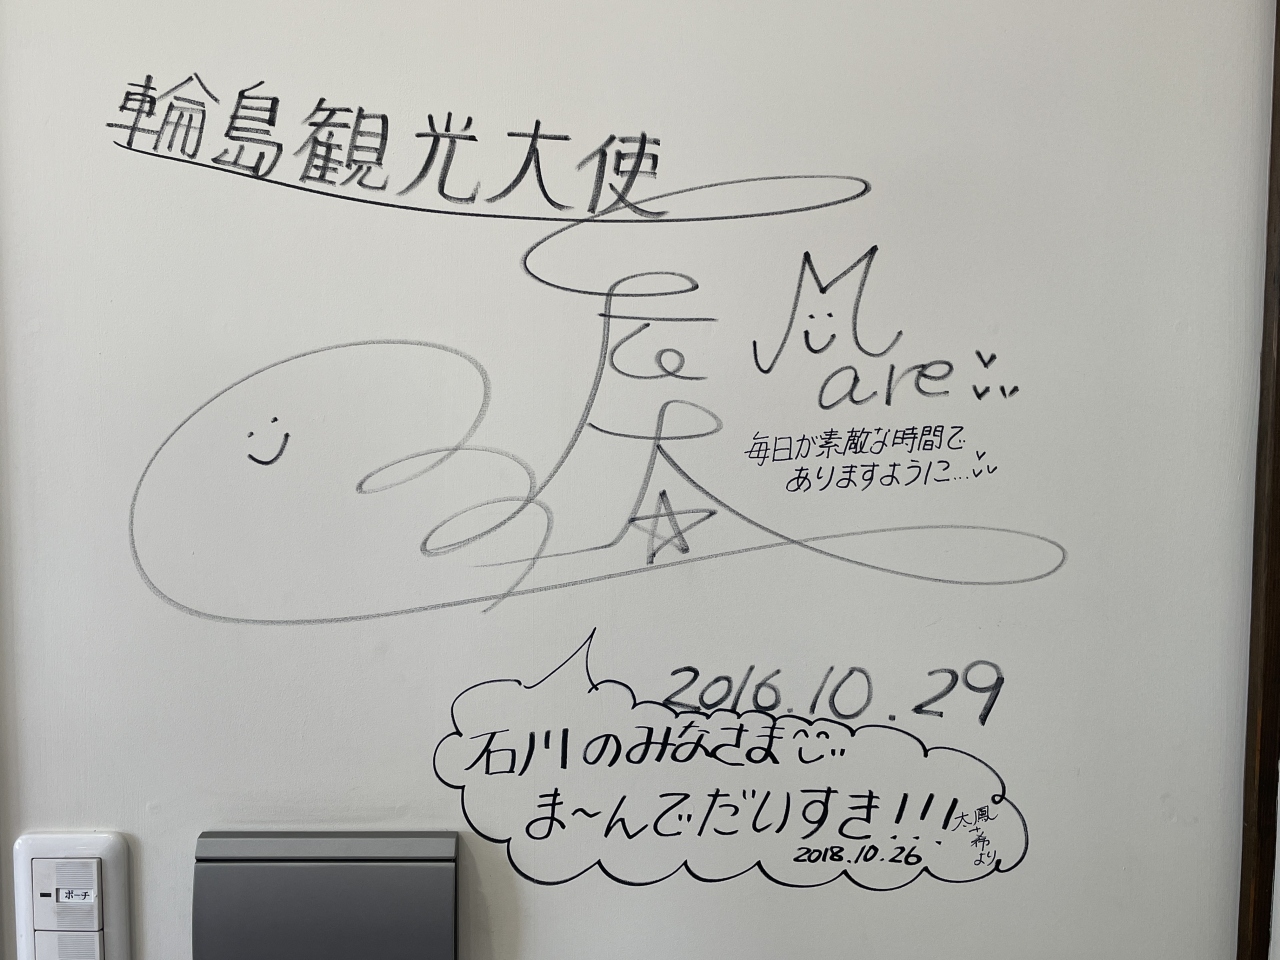 輪島観光大使
Mare
毎日が素敵な時間で
ありますように…
2016.10.29
石川のみなさま
ま〜んでだいすき!!!
2018.10.26
太鳳
+希
より
ポーチ